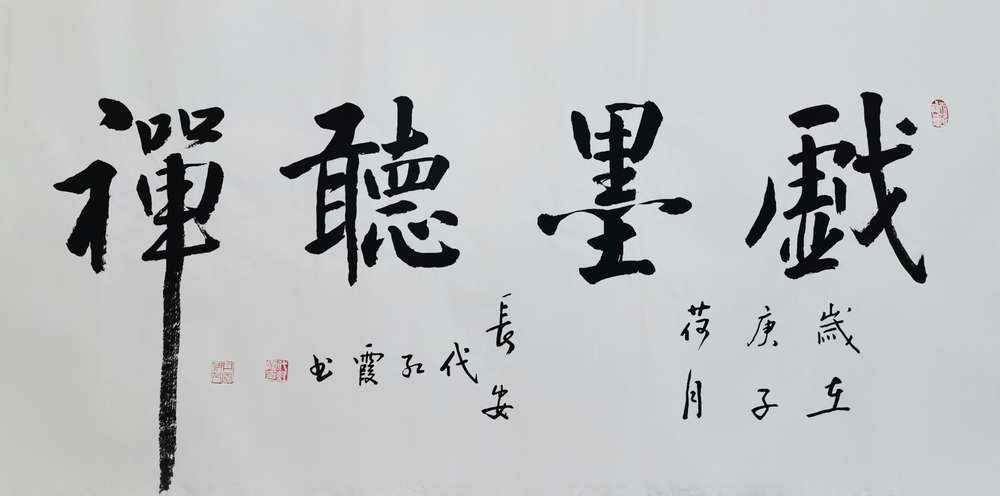 戲墨聽禪
歲在
庚子
荷月
長安
代紅霞书